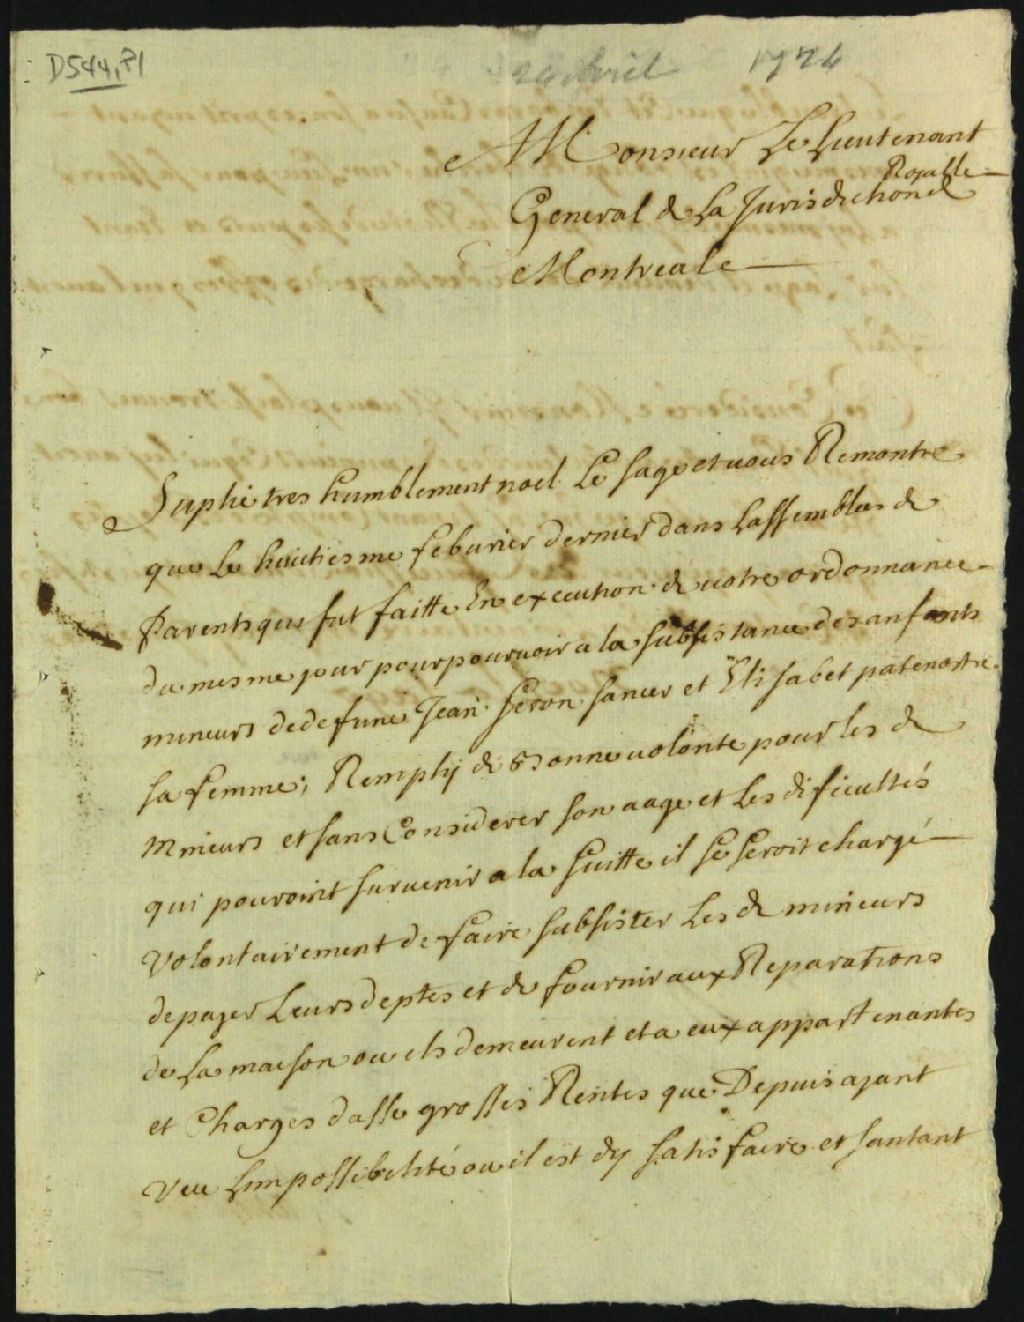 D544,P1
24 Avril 1724
A Monsieur Le Lieutenant
General de La Jurisdiction Royalle de
Montreale
Suplie tres humblement noel Le Sage et vous Remontre
que Le huitiesme feburier dernier dans Lassemblée de
Parents que fut faitte En execution de votre ordonnance
du mesme jour pour pourvoir a la subsistance des anfants
mineurs de defunc Jean Seron Sancer et Elisabet patenostre
sa femme; Remply de Bonne volonte pour les d
Mineurs et sans Considerer son aage et Les dificultés
qui pouroint survenir a la suitte il se seroit chargé
volontairement de faire subsister Les d mineurs
de payer Leurs deptes et de fournir aux Reparations
de La maison ou ils demeurent et a eux appartenantes
et Charges dasse grosses Rentes que Depuis ayant
veu Limpossibelité ou il est dy satisfaire et santant